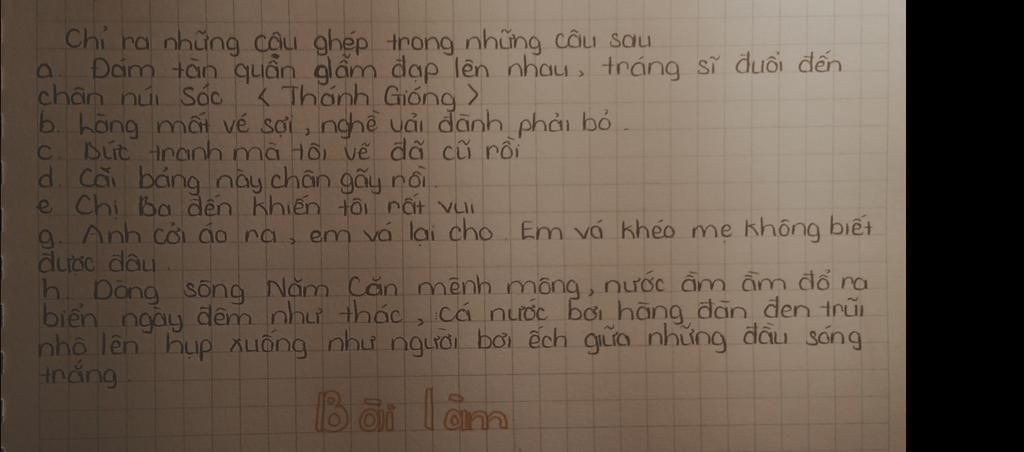 Chỉ ra những câu ghép trong những câu sau
a. Đám tàn quân giẫm đạp lên nhau, tráng sĩ đuổi đến
chân núi Sóc < Thánh Gióng >
b. Làng mất vé sợi, nghề vải đành phải bỏ.
c. Bức tranh mà tôi vẽ đã cũ rồi
d. Cái bảng này chân gãy rồi.
e Chị Ba đến khiến tôi rất vui
g. Anh cởi áo ra, em vá lại cho. Em vá khéo mẹ không biết
được đâu.
h. Dòng sông Năm Căn mênh mông, nước ầm ầm đổ ra
biển ngày đêm như thác, cá nước bơi hàng đàn đen trũi
nhô lên hụp xuống như người bơi ếch giữa những đầu sóng
trắng.
Bài làm